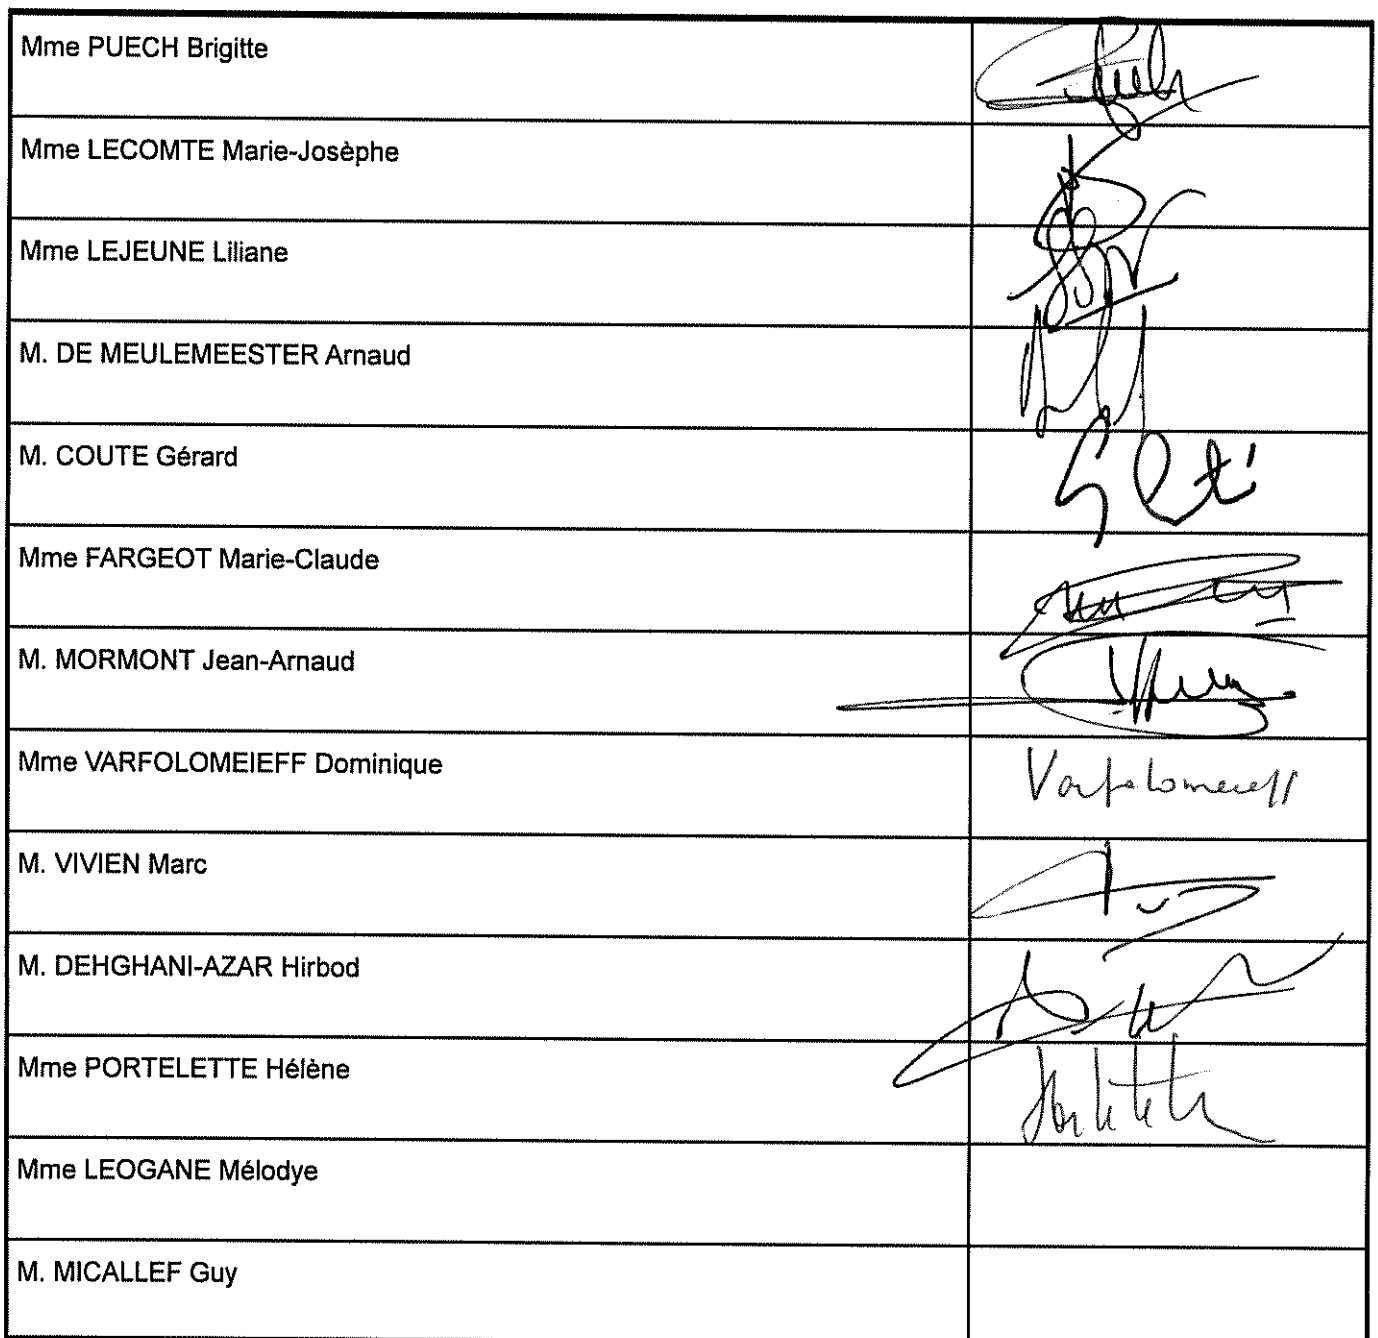 Mme PUECH Brigitte
Mme LECOMTE Marie-Josèphe
Mme LEJEUNE Liliane
M. DE MEULEMEESTER Arnaud
M. COUTE Gérard
Mme FARGEOT Marie-Claude
M. MORMONT Jean-Arnaud
Mme VARFOLOMEIEFF Dominique
Varfolomeieff
M. VIVIEN Marc
M. DEHGHANI-AZAR Hirbod
Mme PORTELETTE Hélène
Mme LEOGANE Mélodye
M. MICALLEF Guy